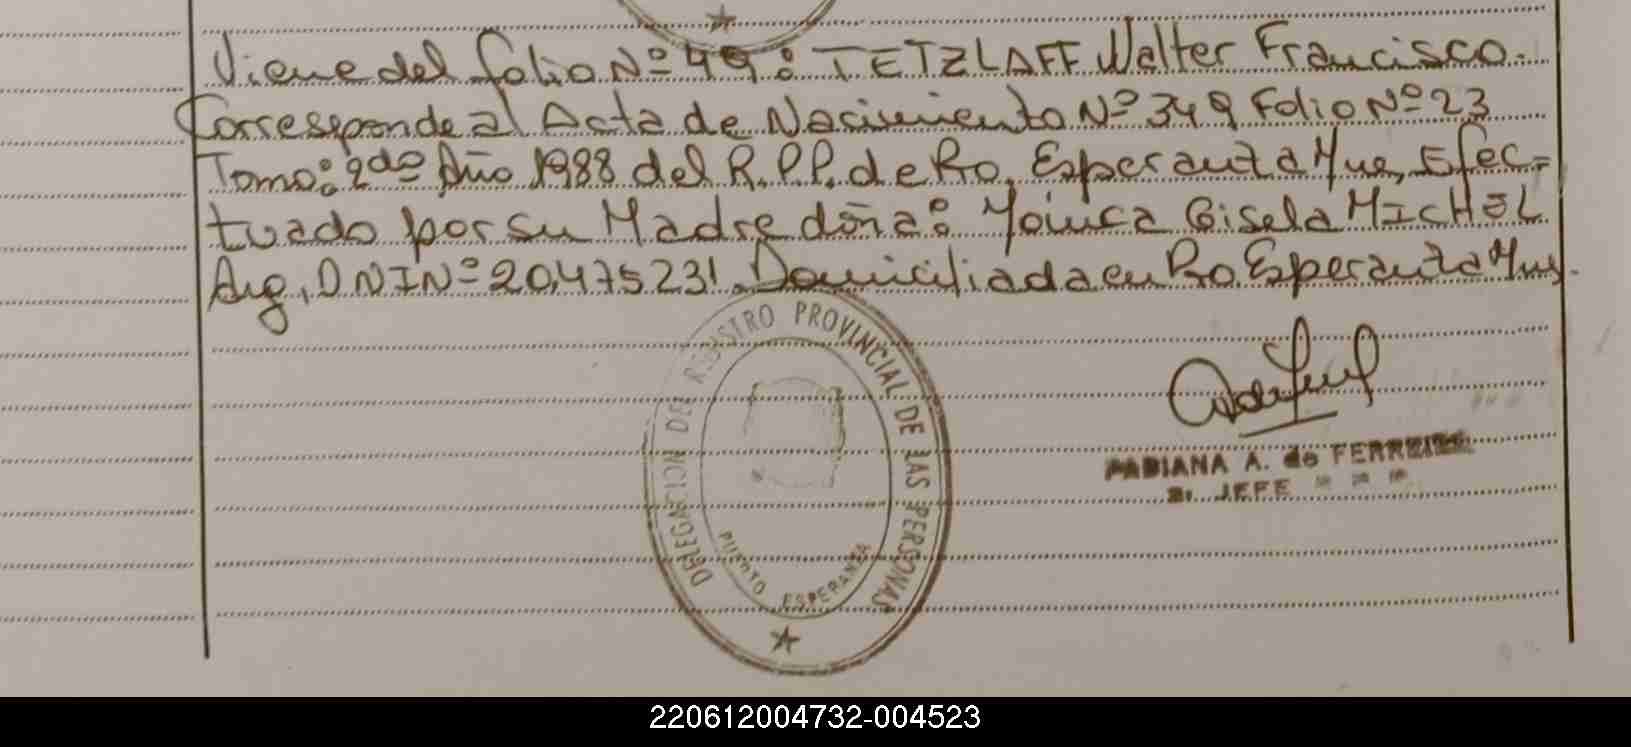 Viene del folio Nº 49: TETZLAFF Walter Francisco.
Corresponde al Acta de Nacimiento Nº 349 Folio Nº 23
Tomo: 2do Año 1988 del R.P.P. de Pto. Esperanza Mnes, Efec=
tuado por su Madre doña: Mónica Gisela MICHEL
Arg, DNI Nº 20.475231. Domiciliada en Pto. Esperanza Mnes.
DELEGACION DEL REGISTRO PROVINCIAL DE LAS PERSONAS
PUERTO ESPERANZA
FABIANA A. de FERREIRA
JEFE
220612004732-004523